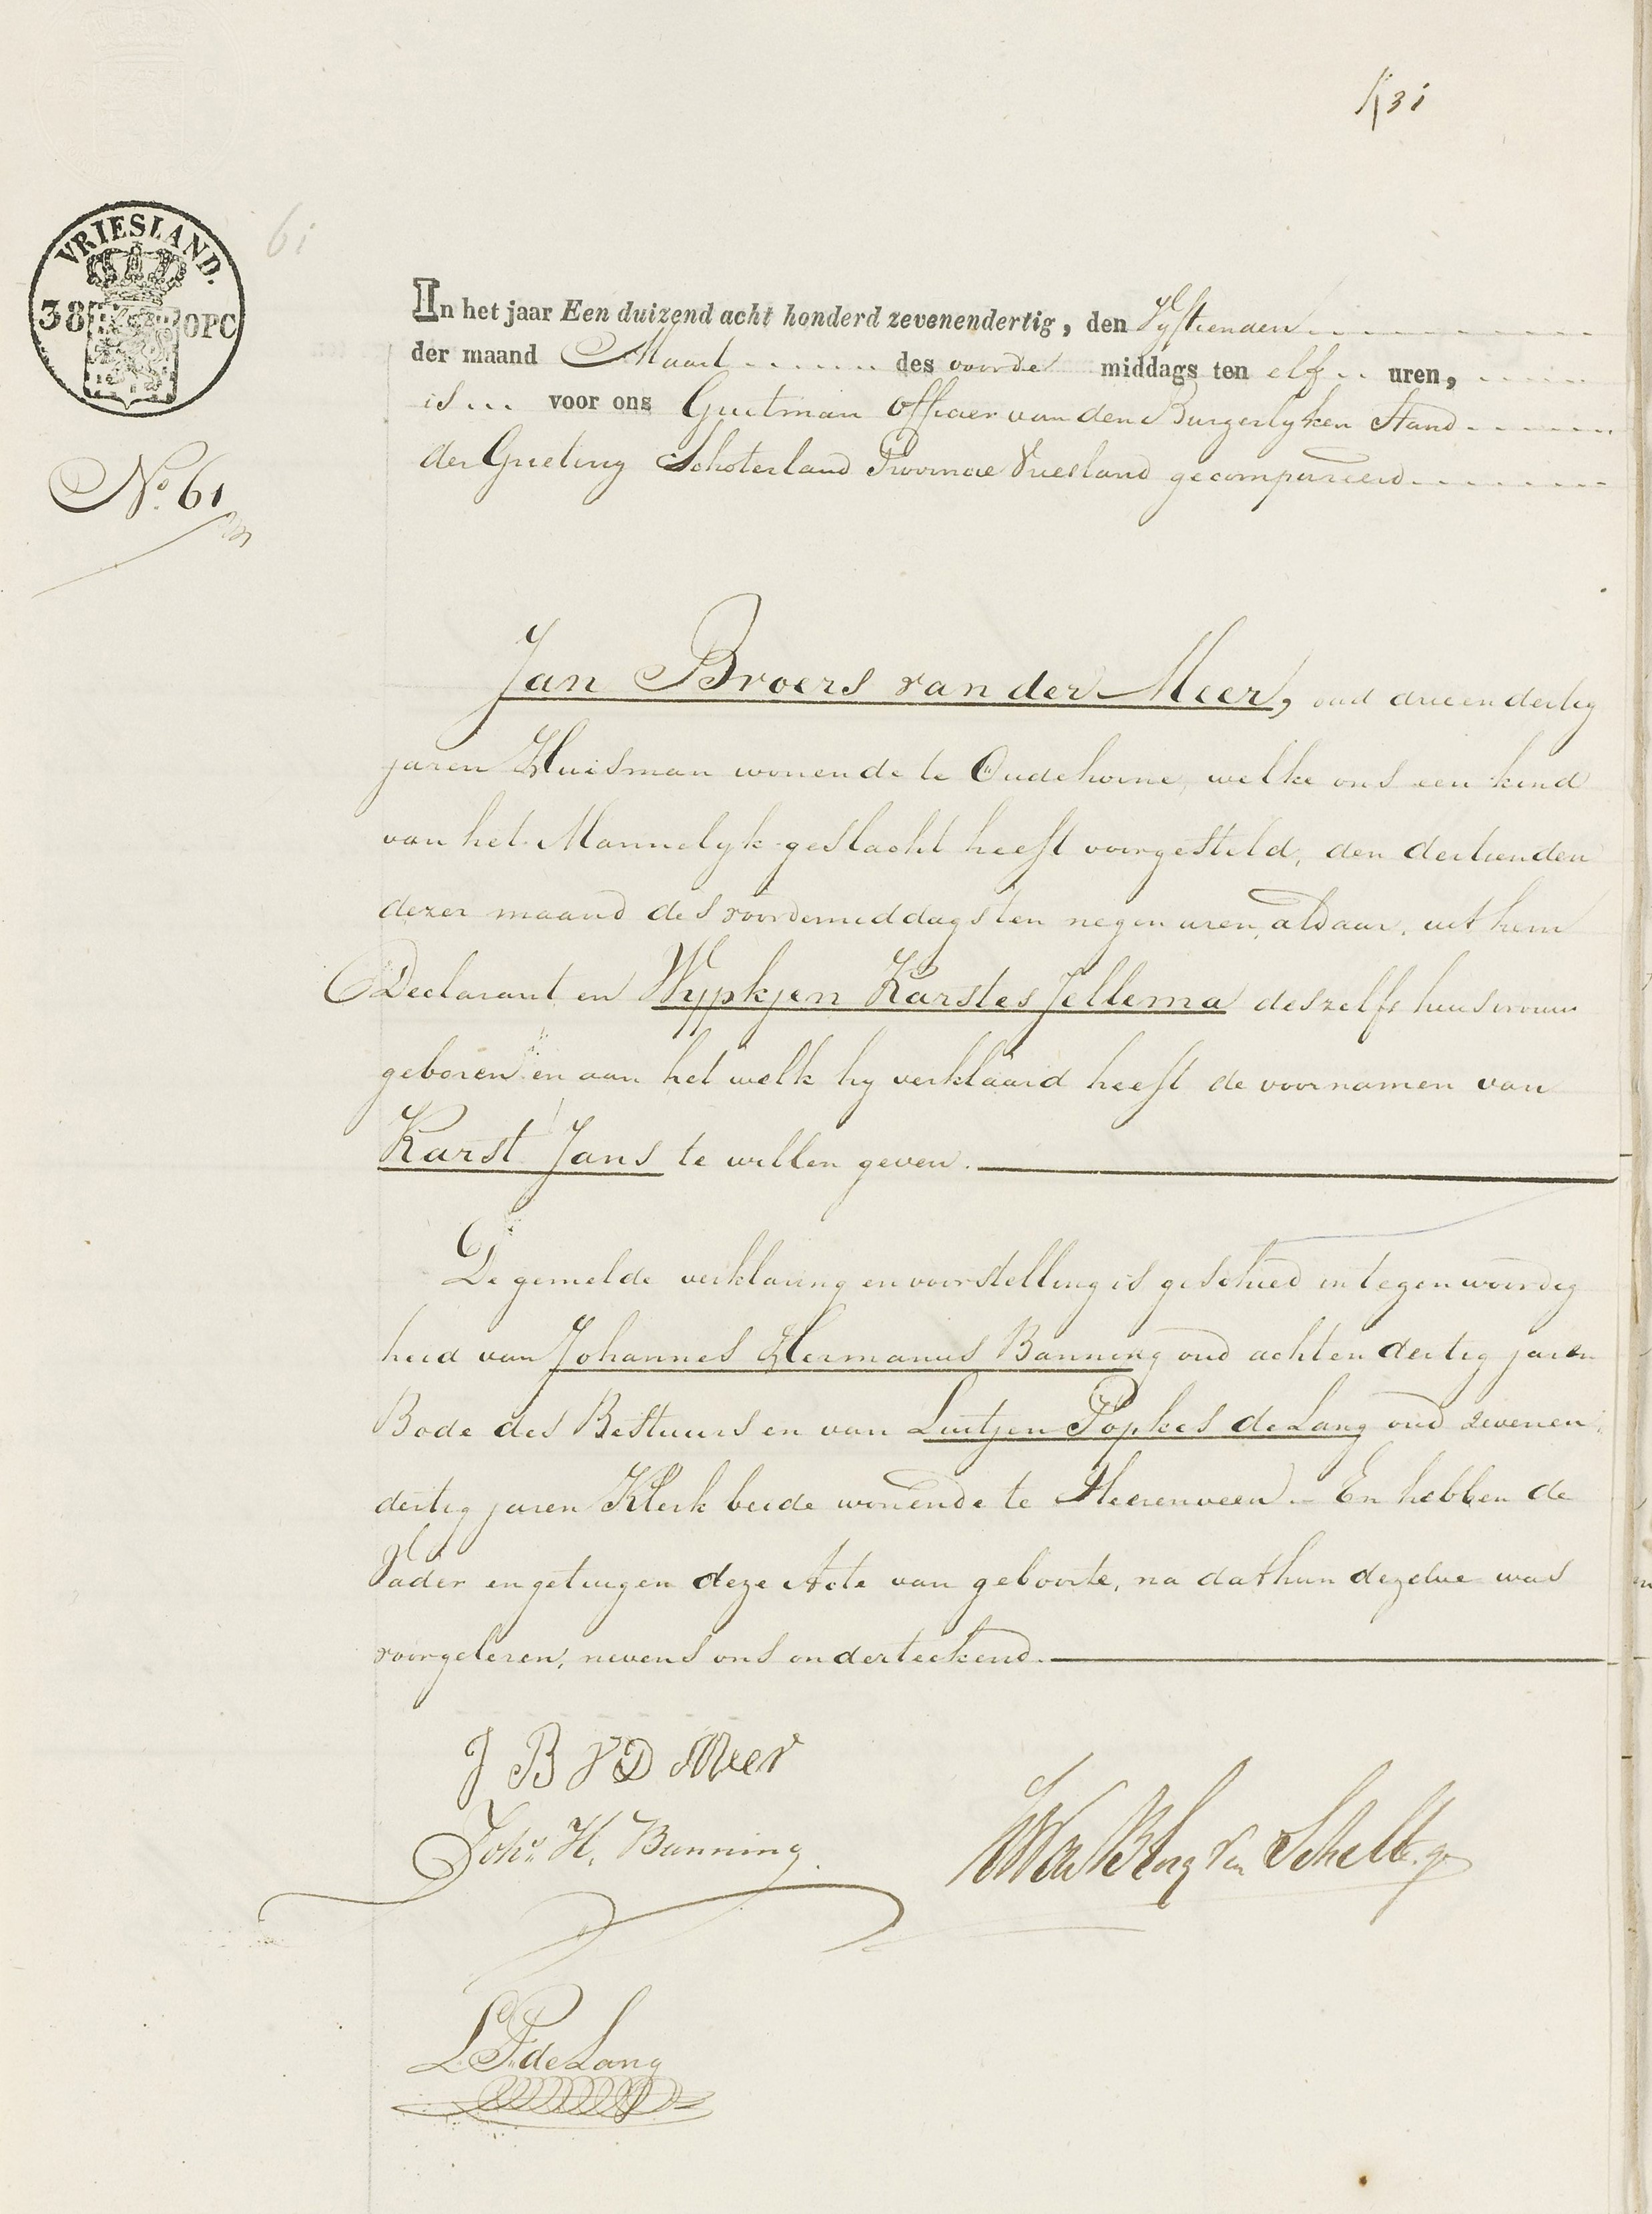 K31
VRIESLAND.
38 OPC
61
No. 61
In het jaar Een duizend acht honderd zevenendertig, den Vyftienden
der maand Maart des voorde middags ten elf uren,
is voor ons Grietman Officier van den Burgerlyken Stand
der Grieteny Schoterland Provincie Vriesland gecompareerd
Jan Broers van der Meer, oud drieendertig
jaren Huisman wonende te Oudehorne, welke ons een kind
van het Mannelyk geslacht heeft voorgesteld, den dertienden
dezer maand des voordemiddags ten negen uren, aldaar, uit hem
Declarant en Wypkjen Karstes Jellema deszelfs huisvrouw
geboren en aan het welk hy verklaard heeft de voornamen van
Karst Jans te willen geven.
De gemelde verklaring en voorstelling is geschied in tegenwoordig
heid van Johannes Hermanus Banning oud achtendertig jaren
Bode des Bestuurs en van Luitjen Popkes de Lang oud zevenen
dertig jaren Klerk beide wonende te Heerenveen. En hebben de
Vader en getuigen deze Acte van geboorte, na dat hun dezelve was
voorgelezen, nevens ons onderteekend.
J B V D Meer
Johs. H. Banning
L P de Lang